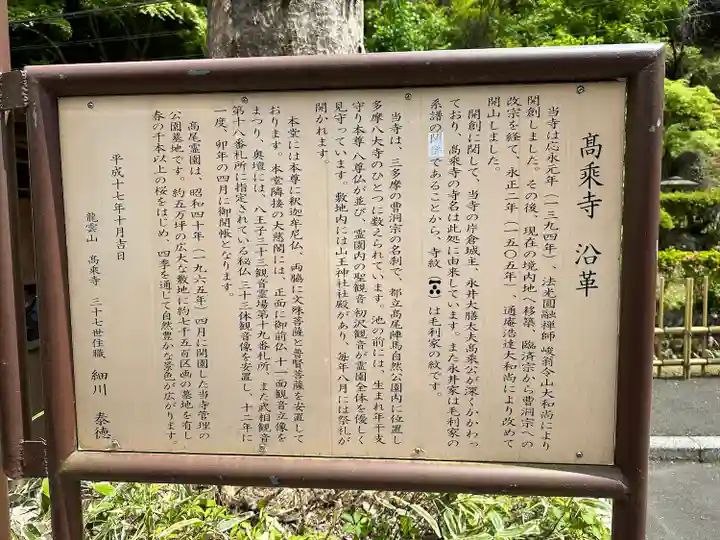 髙乘寺 沿革
当寺は応永元年（一三九四年）、法光圓融禅師 峻翁令山大和尚により
開創しました。その後、現在の境内地へ移築、臨済宗から曹洞宗への
改宗を経て、永正二年（一五〇五年）、通庵浩達大和尚により改めて
開山しました。
開創に関して、当寺の片倉城主、永井大膳太夫高乘公が深くかかわっ
ており、高乘寺の寺名は此処に由来しています。また永井家は毛利家の
系譜の
であることから、寺紋【 】は毛利家の紋です。
当寺は、三多摩の曹洞宗の名刹で、都立高尾陣馬自然公園内に位置し
多摩八大寺のひとつに数えられています。池の前には、生まれ年干支
守り本尊 八尊仏が並び、霊園内の聖観音 初沢観音が霊園全体を優しく
見守っています。敷地内には山王神社社殿があり、毎年八月には祭礼が
開かれます。
本堂には本尊に釈迦牟尼仏、両脇に文殊菩薩と普賢菩薩を安置して
おります。本堂隣接の大慈閣には、正面に御前仏 十一面観音立像を
まつり、奥壇には、八王子三十三観音霊場第十九番札所、また武相観音
第十八番札所に指定されている秘仏 三十三体観音像を安置し、十二年に
一度、卯年の四月に御開帳となります。
高尾霊園は、昭和四十年（一九六五年）四月に開園した当寺管理の
公園墓地です。約五万坪の広大な敷地に約七千五百区画の墓地を有し
春の千本以上の桜をはじめ、四季を通じて自然豊かな景色が広がります。
平成十七年十月吉日
龍雲山 高乘寺 三十七世住職 細川 泰徳